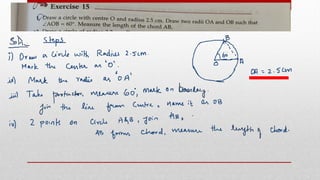 Exercise 15
Draw a circle with centre O and radius 2.5 cm. Draw two radii OA and OB such that
∠AOB = 60°. Measure the length of the chord AB.
Sol. Steps
i) Draw a circle with Radius 2.5cm.
Mark the Center as 'O'.
ii) Mark the radius as OA
iii) Take protractor measure 60°, mark on boundary.
Join the line from Centre, name it as OB
iv) 2 points on Circle A&B, Join AB,
AB forms chord, measure the length of chord.
B
60
O
A
OA = 2.5cm